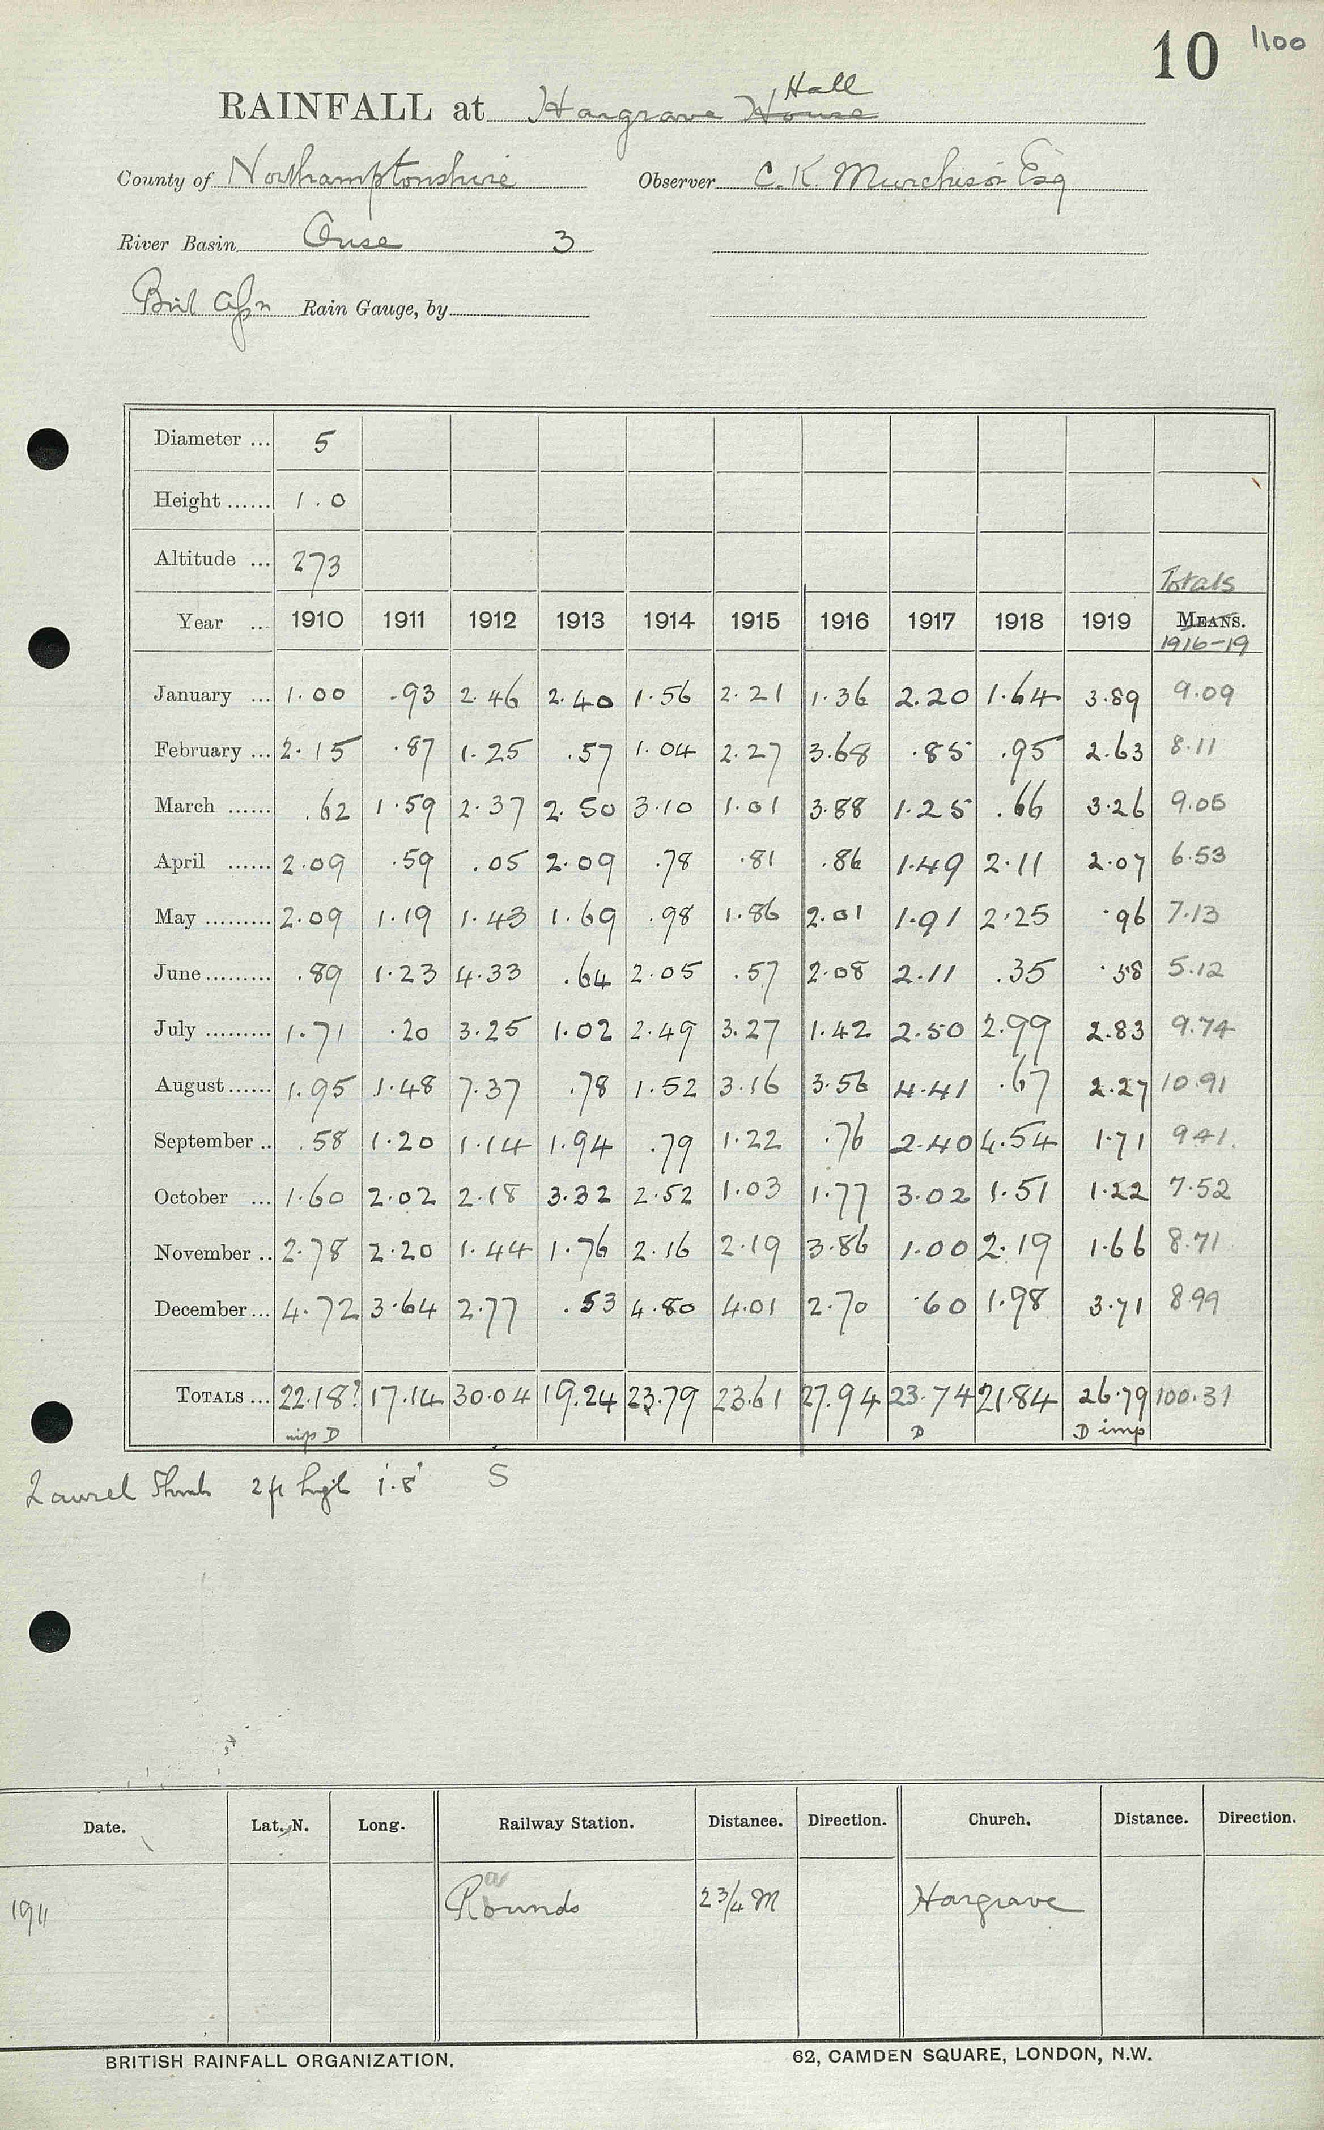 10 1100
RAINFALL at Hargrave House Hall
County of Northamptonshire Observer C. K. Murchison Esq
River Basin Ouse 3
Rain Gauge, by
Diameter ... 5
Height ...... 1.0
Altitude ... 273
Totals
Year ... 1910 1911 1912 1913 1914 1915 1916 1917 1918 1919 MEANS.
1916-19
January ... 1.00 .93 2.46 2.40 1.56 2.21 1.36 2.20 1.64 3.89 9.09
February ... 2.15 .87 1.25 .57 1.04 2.27 3.68 .85 .95 2.63 8.11
March ...... .62 1.59 2.37 2.50 3.10 1.01 3.88 1.25 .66 3.26 9.05
April ...... 2.09 .59 .05 2.09 .78 .81 .86 1.49 2.11 2.07 6.53
May ......... 2.09 1.19 1.43 1.69 .98 1.86 2.01 1.91 2.25 .96 7.13
June ......... .89 1.23 4.33 .64 2.05 .57 2.08 2.11 .35 .58 5.12
July ......... 1.71 .20 3.25 1.02 2.49 3.27 1.42 2.50 2.99 2.83 9.74
August ...... 1.95 1.48 7.37 .78 1.52 3.16 3.56 4.41 .67 2.27 10.91
September .. .58 1.20 1.14 1.94 .79 1.22 .76 2.40 4.54 1.71 9.41
October ... 1.60 2.02 2.18 3.32 2.52 1.03 1.77 3.02 1.51 1.22 7.52
November .. 2.78 2.20 1.44 1.76 2.16 2.19 3.86 1.00 2.19 1.66 8.71
December ... 4.72 3.64 2.77 .53 4.80 4.01 2.70 .60 1.98 3.71 8.99
TOTALS ... 22.18? 17.14 30.04 19.24 23.79 23.61 27.94 23.74 21.84 26.79 100.31
D D D imp
Laurel Shrub 2 ft high 1.8' S
Date. Lat. N. Long. Railway Station. Distance. Direction. Church. Distance. Direction.
1911 Raunds 2 3/4 M Hargrave
BRITISH RAINFALL ORGANIZATION. 62, CAMDEN SQUARE, LONDON, N.W.